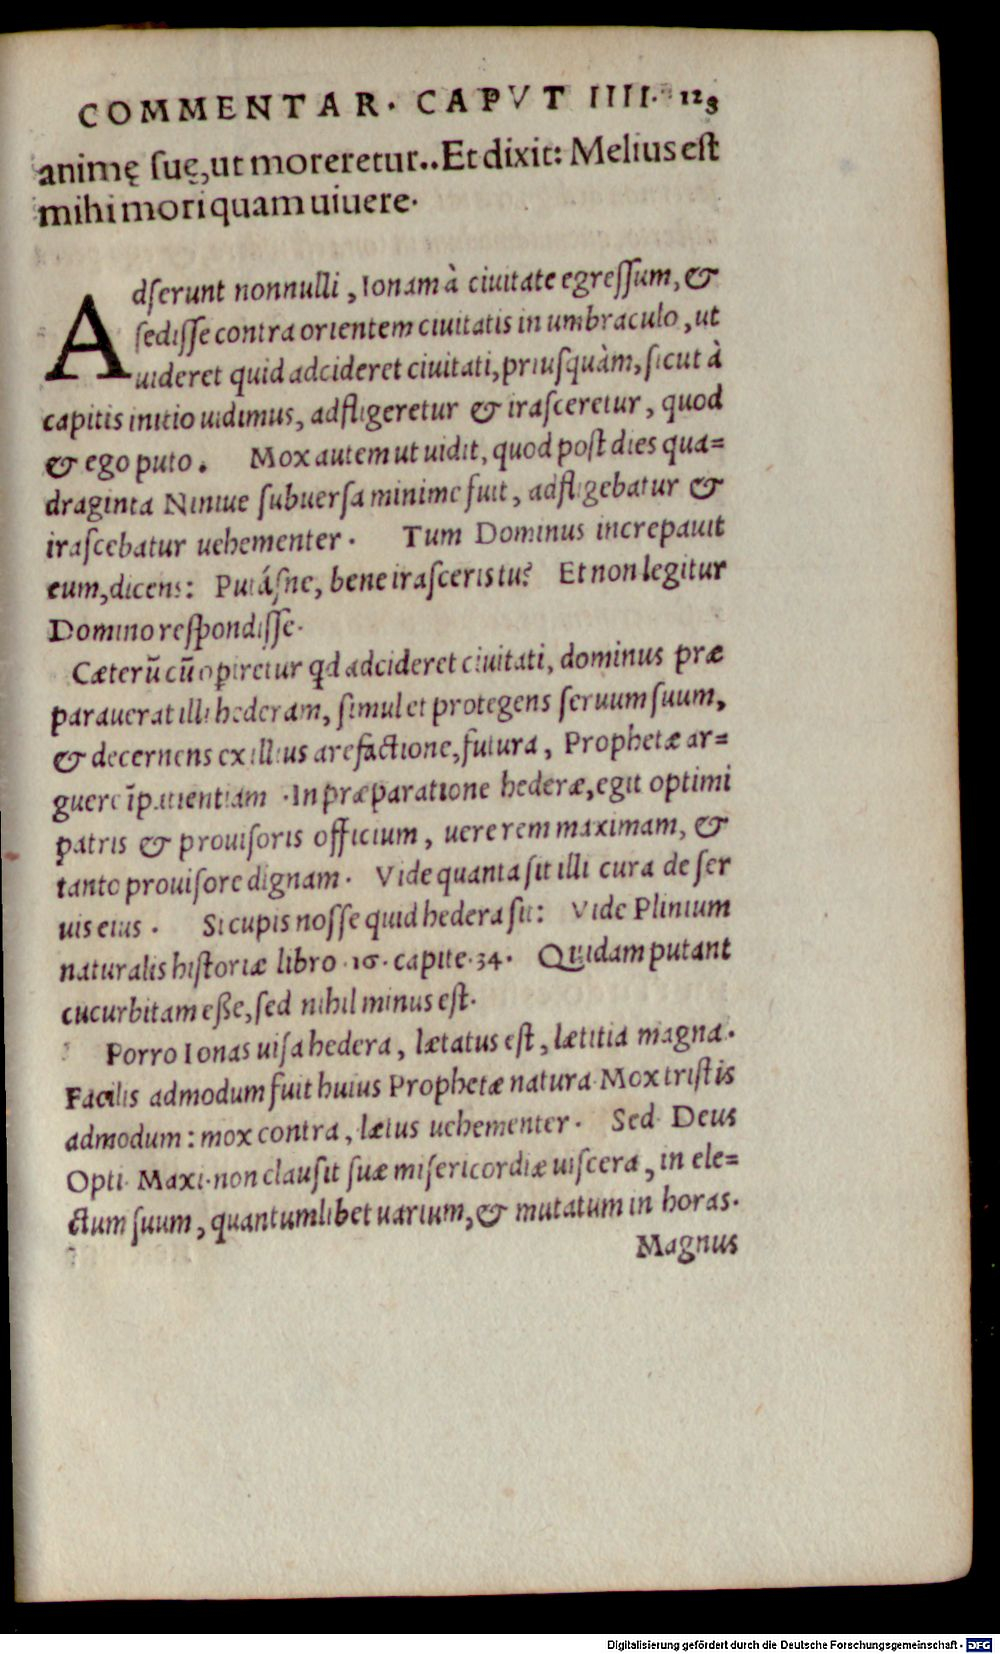 COMMENTAR. CAPVT IIII. 123
animę suę, ut moreretur.. Et dixit: Melius est
mihi mori quam uiuere.
Adſerunt nonnulli, Ionam à ciuitate egreſſum, &
ſediſſe contra orientem ciuitatis in umbraculo, ut
uideret quid adcideret ciuitati, priuſquàm, ſicut à
capitis initio uidimus, adfligeretur & iraſceretur, quod
& ego puto. Mox autem ut uidit, quod poſt dies qua=
draginta Niniue ſubuerſa minime fuit, adfligebatur &
iraſcebatur uehementer. Tum Dominus increpauit
eum, dicens: Putáſne, bene iraſceris tu? Et non legitur
Domino reſpondiſſe.
Cæterũ cũ opiretur qd adcideret ciuitati, dominus præ
parauerat illi hederam, ſimul et protegens ſeruum ſuum,
& decernens ex illius arefactione, futura, Prophetæ ar=
guere ĩpatientiam. In præparatione hederæ, egit optimi
patris & prouiſoris officium, uere rem maximam, &
tanto prouiſore dignam. Vide quanta ſit illi cura de ſer
uis eius. Si cupis noſſe quid hedera ſit: Vide Plinium
naturalis hiſtoriæ libro .16. capite .34. Quidam putant
cucurbitam eße, ſed nihil minus eſt.
Porro Ionas uiſa hedera, lætatus eſt, lætitia magna.
Facilis admodum fuit huius Prophetæ natura. Mox triſtis
admodum: mox contra, lætus uehementer. Sed Deus
Opti. Maxi. non clauſit ſuæ miſericordiæ uiſcera, in ele=
ctum ſuum, quantumlibet uarium, & mutatum in horas.
Magnus
Digitalisierung gefördert durch die Deutsche Forschungsgemeinschaft - DFG